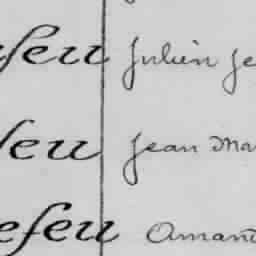 feu Julien Je
feu Jean Ma
efeu Amand